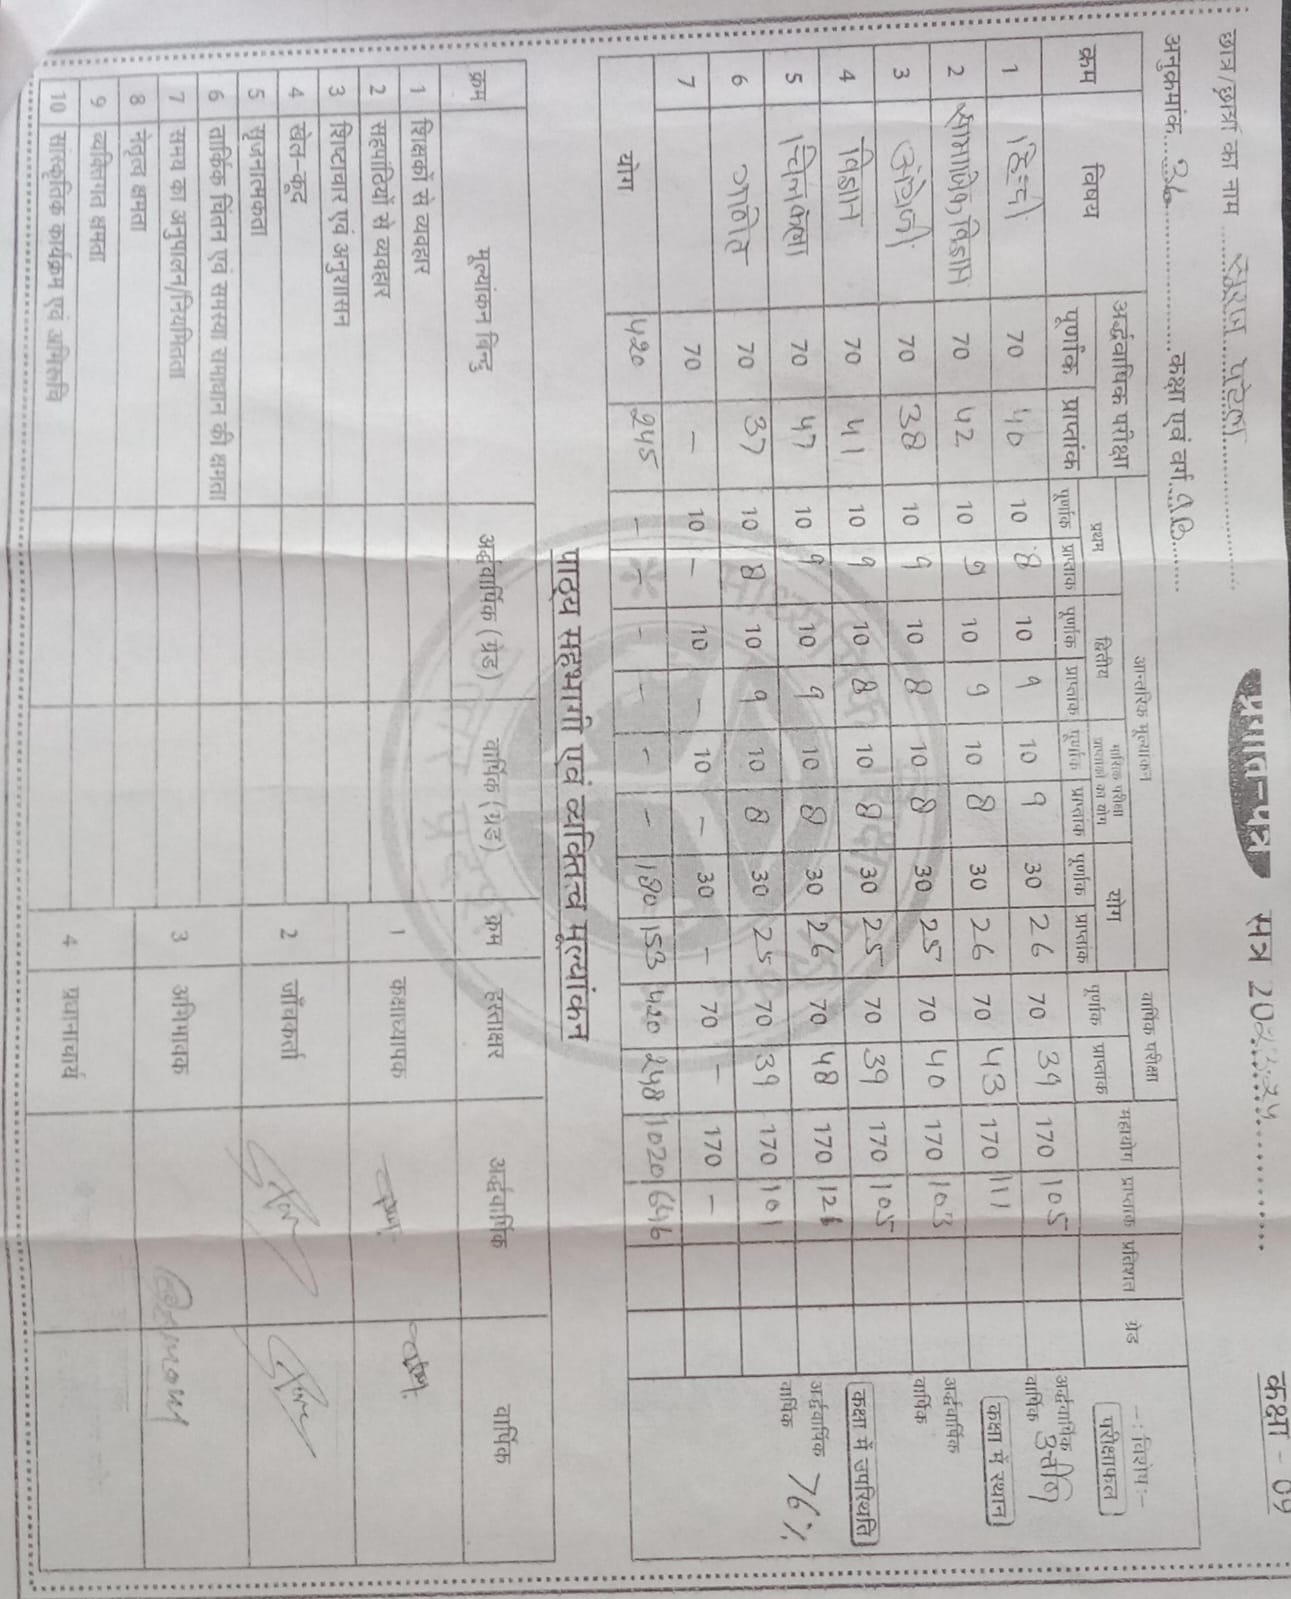 कक्षा - 09
प्रगति-पत्र सत्र 20
छात्र/छात्रा का नाम सूरज पटेल
अनुक्रमांक 36 कक्षा एवं वर्ग 9 B
क्रम विषय अर्द्धवार्षिक परीक्षा आन्तरिक मूल्यांकन वार्षिक परीक्षा महायोग प्राप्तांक प्रतिशत ग्रेड -:विशेष:-
प्रथम द्वितीय मासिक परीक्षा प्राप्तांकों का योग योग
पूर्णांक प्राप्तांक पूर्णांक प्राप्तांक पूर्णांक प्राप्तांक पूर्णांक प्राप्तांक पूर्णांक प्राप्तांक पूर्णांक प्राप्तांक
1 हिन्दी 70 40 10 8 10 9 10 9 30 26 70 39 170 105
2 सामाजिक विज्ञान 70 42 10 9 10 9 10 8 30 26 70 43 170 111
3 अंग्रेजी 70 38 10 9 10 8 10 8 30 25 70 40 170 103
4 विज्ञान 70 41 10 9 10 8 10 8 30 25 70 39 170 105
5 चित्रकला 70 47 10 9 10 9 10 8 30 26 70 48 170 121
6 गणित 70 37 10 8 10 9 10 8 30 25 70 39 170 101
7 70 - 10 - 10 - 10 - 30 - 70 - 170 -
योग 420 245 - - - - - - 180 153 420 248 1020 646
परीक्षाफल
अर्द्धवार्षिक
वार्षिक उत्तीर्ण
कक्षा में स्थान
अर्द्धवार्षिक
वार्षिक
कक्षा में उपस्थिति
अर्द्धवार्षिक
वार्षिक 76%
पाठ्य सहभागी एवं व्यक्तित्व मूल्यांकन
क्रम मूल्यांकन बिन्दु अर्द्धवार्षिक (ग्रेड) वार्षिक (ग्रेड) क्रम हस्ताक्षर अर्द्धवार्षिक वार्षिक
1 शिक्षकों से व्यवहार
2 सहपाठियों से व्यवहार
3 शिष्टाचार एवं अनुशासन
4 खेल-कूद
5 सृजनात्मकता
6 तार्किक चिंतन एवं समस्या समाधान की क्षमता
7 समय का अनुपालन/नियमितता
8 नेतृत्व क्षमता
9 व्यक्तिगत क्षमता
10 सांस्कृतिक कार्यक्रम एवं अभिरुचि
1 कक्षाध्यापक
2 जाँचकर्ता
3 अभिभावक
4 प्रधानाचार्य